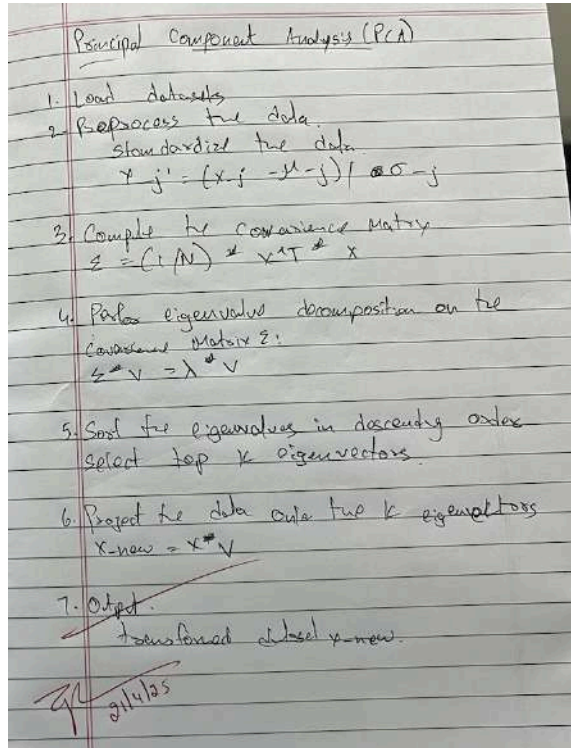 Principal Component Analysis (PCA)
1. Load datasets
2. Preprocess the data.
standardize the data
x-j' = (x-j - μ-j) / σ-j
3. Compute the Covariance Matrix
Σ = (1/N) * X^T * X
4. Perfor eigenvalue decomposition on the
Covariance Matrix Σ:
Σ * V = λ * V
5. Sort the eigenvalues in descending order
select top k eigenvectors.
6. Project the data onto the k eigenvectors
X-new = X * V
7. Output.
transformed dataset x-new.
21/4/25